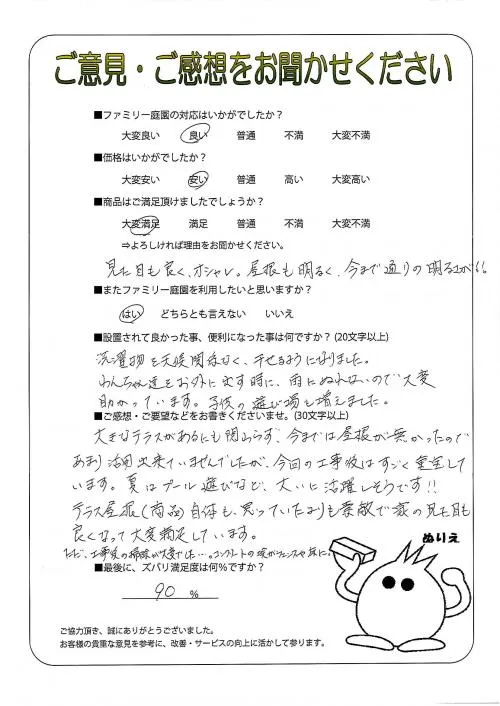 ご意見・ご感想をお聞かせください
■ファミリー庭園の対応はいかがでしたか？
大変良い 良い 普通 不満 大変不満
■価格はいかがでしたか？
大変安い 安い 普通 高い 大変高い
■商品はご満足頂けましたでしょうか？
大変満足 満足 普通 不満 大変不満
⇒よろしければ理由をお聞かせください。
見た目も良く、オシャレ。屋根も明るく、今まで通りの明るさが!!
■またファミリー庭園を利用したいと思いますか？
はい どちらとも言えない いいえ
■設置されて良かった事、便利になった事は何ですか？(20文字以上)
洗濯物を天候関係なく、干せるようになりました。
わんちゃん達をお外に出す時に、雨にぬれないので大変
助かっています。子供の遊び場も増えました。
■ご感想・ご要望などをお書きくださいませ。(30文字以上)
大きなテラスがあるにも関わらず、今までは屋根が無かったので
あまり活用出来ていませんでしたが、今回の工事後はすごく重宝して
います。夏はプール遊びなど、大いに活躍しそうです!!
テラス屋根(商品)自体も、思っていたよりも素敵で家の見た目も
良くなって大変満足しています。
ただ、工事後の掃除が大変でした…。コンクリートの
■最後に、ズバリ満足度は何％ですか？
90 %
ぬりえ
ご協力頂き、誠にありがとうございました。
お客様の貴重な意見を参考に、改善・サービスの向上に活かして参ります。